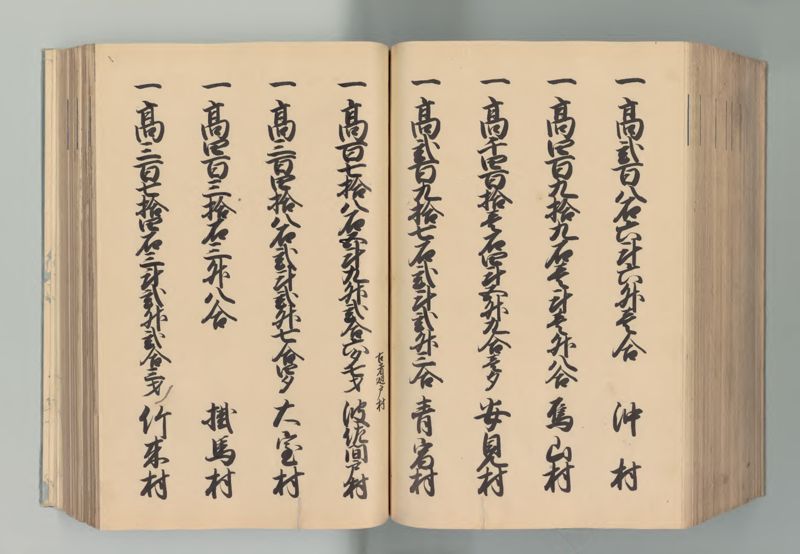 一高弐百八石六斗六升壱合 沖村
一高四百九拾九石壱斗壱升八合 馬山村
一高千四百拾壱石四斗五升九合壱夕 安見村
一高弐百九拾七石弐斗弐升三合 青宿村
古者廻戸村
一高百七拾八石五斗九升弐合六夕七才 波佐間戸村
一高三百四拾八石弐斗弐升七合四夕 大室村
一高四百三拾石三升八合 掛馬村
一高三百七拾四石三斗弐升弐合三才 竹来村